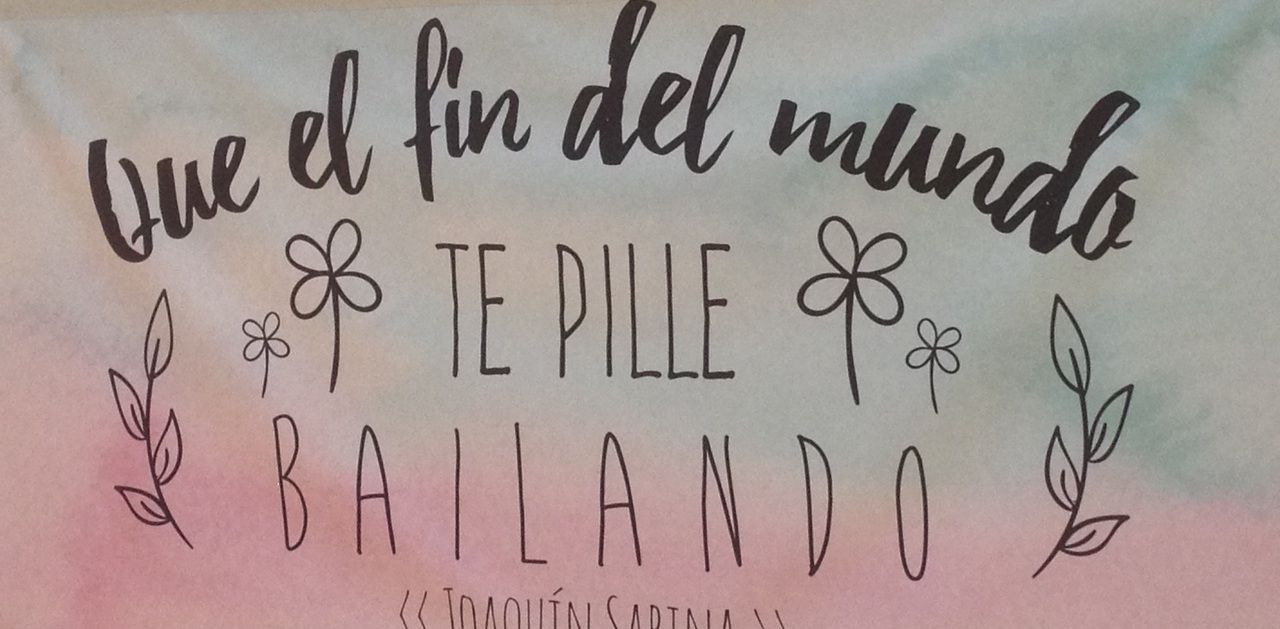 Que el fin del mundo
TE PILLE
BAILANDO
<< JOAQUÍN SABINA >>